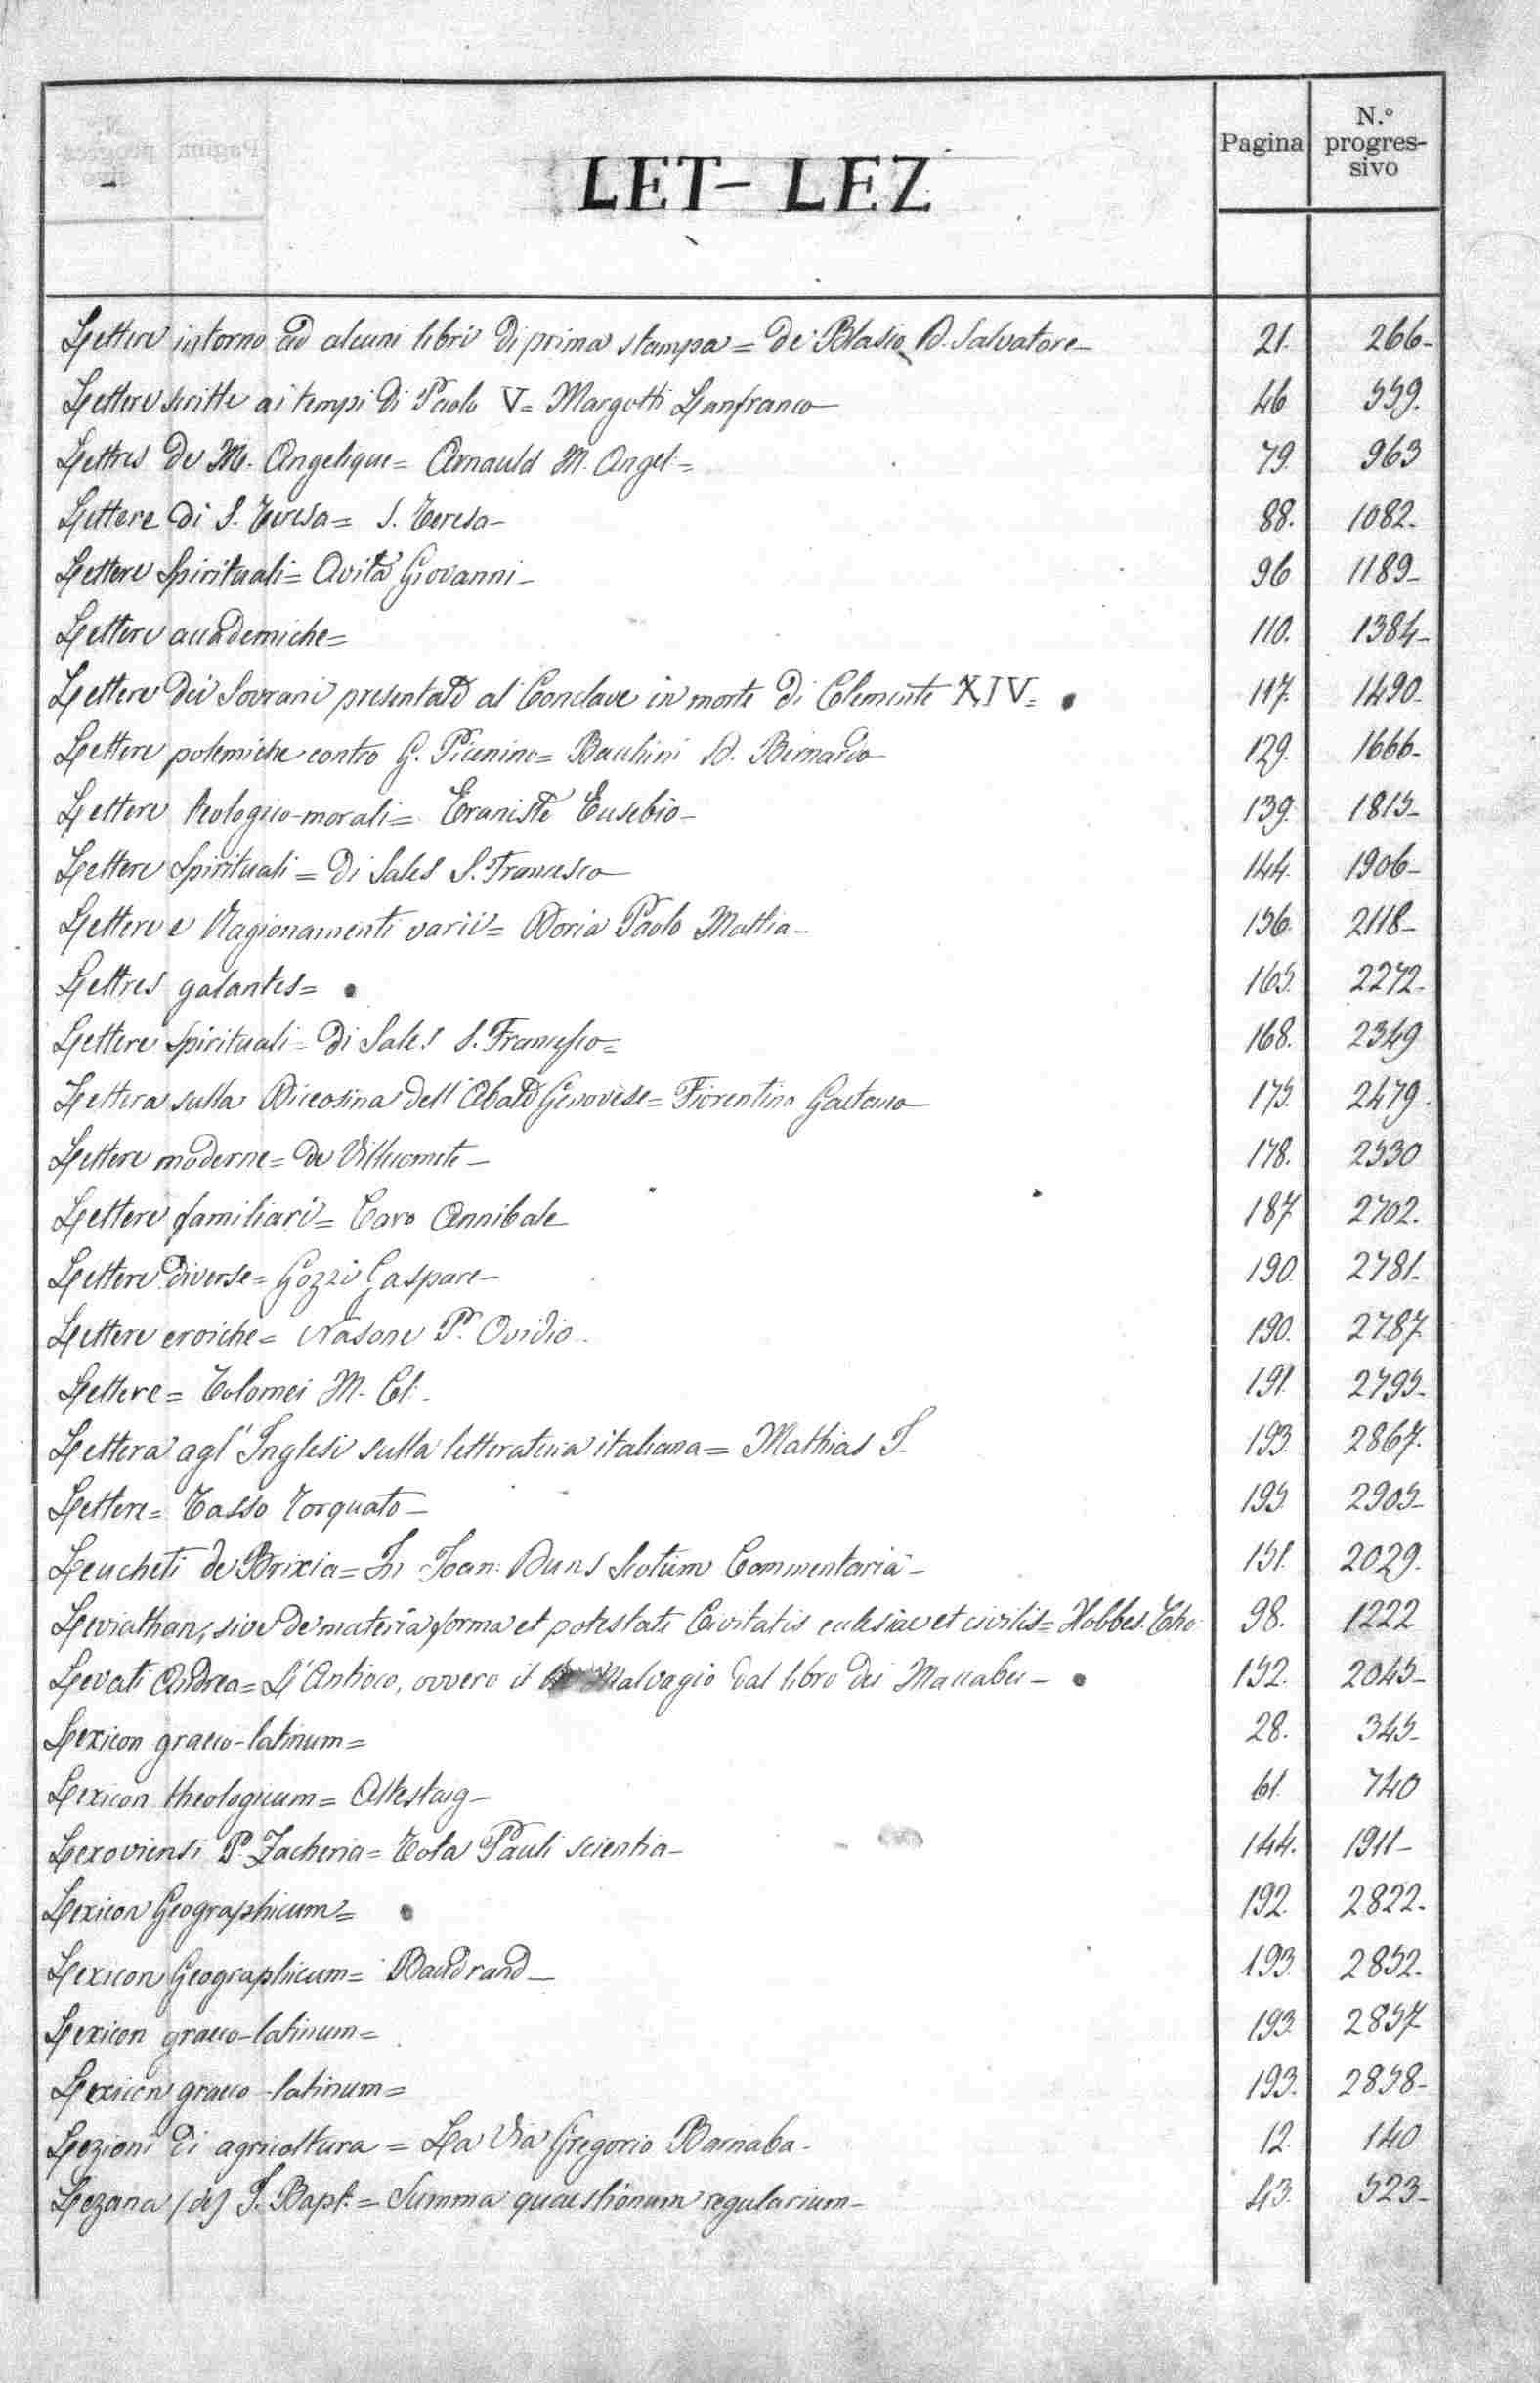 Pagina
N.º progressivo
LET - LEZ
Lettere intorno ad alcuni libri di prima stampa = de Blasio D. Salvatore - 21. 266-
Lettere scritte ai tempi di Paolo V = Margotti Lanfranco 46 559.
Lettres de M. Angelique = Arnauld M. Angel = 79. 963
Lettere di S. Teresa = S. Teresa - 88. 1082.
Lettere Spirituali = Avila Giovanni - 96 1189-
Lettere accademiche = 110. 1384-
Lettere dei Sovrani presentate al Conclave in morte di Clemente XIV = 117. 1490-
Lettere polemiche contro G. Picenino = Bacchini D. Bernardo 129. 1666-
Lettere teologico-morali = Eraniste Eusebio - 139. 1815-
Lettere Spirituali = di Sales S. Francesco 144. 1906-
Lettere e Ragionamenti varii = Doria Paolo Mattia - 156. 2118-
Lettres galantes = 165. 2272-
Lettere Spirituali = di Sales S. Francesco = 168. 2349
Lettera sulla Diceosina dell' Abate Genovese = Fiorentino Gaetano 175. 2479.
Lettere moderne = de 178. 2530
Lettere familiari = Caro Annibale 187 2702.
Lettere diverse = Gozzi Gaspare - 190. 2781-
Lettere eroiche = Nasone P. Ovidio. 190. 2787
Lettere = Tolomei M. Cl. - 191. 2795-
Lettera agl' Inglesi sulla letteratura italiana = Mathias T. 193. 2867.
Lettere = Tasso Torquato - 195 2905-
Leucheti de Brixia = In Joan: Duns Scotum Commentaria - 151. 2029.
Leviathan, sive de materia forma et potestate Civitatis eclesiae et civilis = Hobbes. Tho. 98. 1222
Levati Andrea = L' Antioco, ovvero il Malvagio dal libro dei Maccabei - 152. 2045-
Lexicon graeco-latinum = 28. 345-
Lexicon theologicum = Altestaig - 61. 740
Lexoviensi P. Zacheria = Tota Pauli scientia - 144. 1911-
Lexicon Geographicum = 192. 2822.
Lexicon Geographicum = Baudrand - 193. 2852.
Lexicon graeco-latinum = 193. 2857
Lexicon graeco-latinum = 193. 2858-
Lezioni di agricoltura = La Via Gregorio Barnaba - 12. 140
Lezana (de) J. Bapt. = Summa quaestionum regularium - 43. 523-